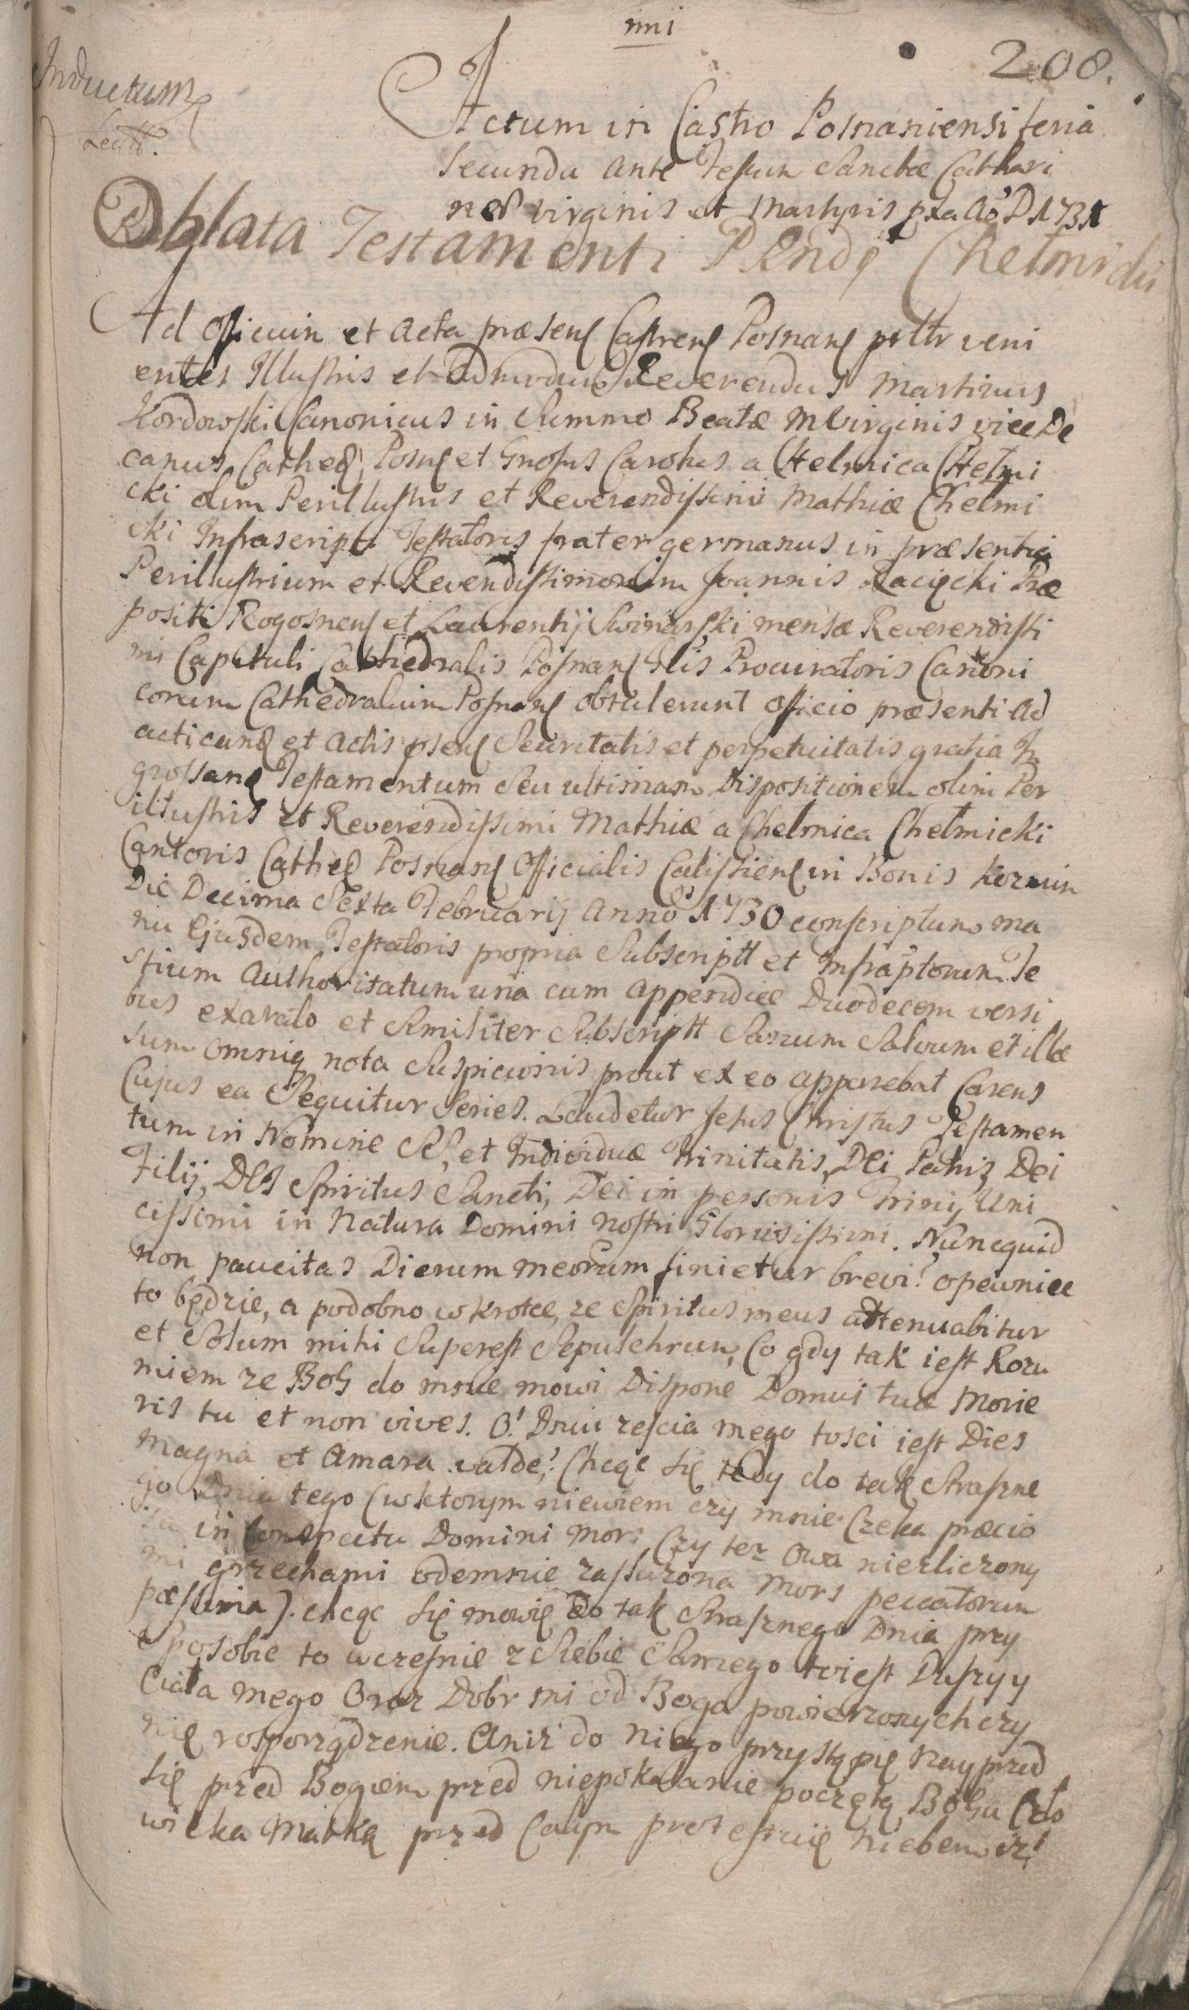 1111
208.
Inductum
Lectt.
Actum in Castro Posnaniensi feria
secunda ante Festum Sanctæ Cathari
næ virginis et Martyris pxa Aō D 1731
Oblata Testamenti Rendi Chełmicki
Ad Officium et Acta præsens Castrens Posnans prltr veni
entes Illustris et Admodum Reverendus Martinus
Kordowski Canonicus in Summo Beatæ M Virginis vice De
canus Cathed Posns et Gnosus Carolus a Chełmica Chełmi
cki olim Perillustris et Reverendissimi Mathiæ Chełmi
cki Infrascripti Testatoris frater germanus in præsentia
Perillustrium et Revendissimorum Joannis Racięcki Præ
positi Rogosnens et Laurentij Swinarski mensæ Reverendissi
mi Capituli Cathedralis Posnans Glis Procuratoris Canoni
corum Cathedralium Posnans obtulerunt officio præsenti ad
acticand et Actis psens Securitatis et perpetuitatis gratia In
grossand Testamentum seu ultimam Dispositionem olim Per
illustris et Reverendissimi Mathiæ a Chełmica Chełmicki
Cantoris Cathed Posnans Officialis Calissiens in Bonis Kozmin
Die Decima Sexta Februarij Anno 1730 conscriptum ma
nu Ejusdem Testatoris propria Subscriptt et Infraptorum Te
stium Authorisatum una cum appendice Duodecem versi
bus exarato et Similiter Subscriptt Sanum Salvum et illæ
sum omniq nota Suspicionis prout ex eo apparebat Carens
Cujus ea Sequitur Series. Laudetur Jesus Christus Testamen
tum in Nomine SS. et Individuæ Trinitatis, Dei Patris Dei
Filij, Dei Spiritus Sancti, Dei in personis Trini, Uni
cissimi in Natura Domini nostri Gloriosissimi. Nunquid
non paucitas Dierum meorum finietur brevi? o pewnie
to będzie, a podobno w krotce, ze Spiritus meus attenuabitur
et Solum mihi Superest Sepulchrum, Co gdy tak iest Rozu
miem ze Bog do mnie mowi Dispone Domui tuæ Morie
ris tu et non vives. O! Dniu zescia mego tosci iest Dies
magna et Amara valde! Chcąc się tedy do tak Straszne
go Dnia tego (w ktorym niewiem czy mnie Czeka præcio
sa in Conspectu Domini Mors Czy tez owa niezliczony
mi grzechami odemnie zasłuzona Mors peccatorum
pæssima). chcąc się mowię do tak Strasznego Dnia przy
sposobic to wczesnie z Siebie Samego to iest Duszy y
Ciała mego oraz Dobr mi od Boga powierzonych czy
nię rosporządzenie. Aniz do niego przystąpię nayprzed
się przed Bogiem przed niepokalanie poczętą Boga Czło
wieka Matką przed Całym protestuię Niebem iz!